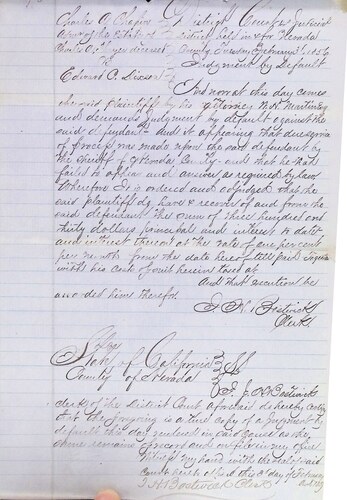 Charles A. District Court Judicial
of the Estate of District held in & for Nevada
deceased County February 1856
vs Judgment by Default
Edward P.
And now at this day comes
the said Plaintiff by his Attorney N. H. Martin Esq
and demands judgment by default against the
said defendant. And it appearing that due service
of process was made upon the said defendant by
the Sheriff of Nevada County and that he has
failed to appear and answer as required by law
Wherefore It is ordered and adjudged that the
said plaintiff do have & recover of and from the
said defendant the sum of three hundred and
thirty dollars principal and interest to date
and interest thereon at the rate of one per cent
per month from the date hereof till paid Together
with his Costs of suit herein taxed at
And that execution be
awarded him therefor
J. H. Bostwick
Clerk
State of California } SS
County of Nevada }
I J. H. Bostwick
clerk of the District Court aforesaid do hereby certify
that the foregoing is a true copy of a Judgment by
default this day rendered in said Cause as the
same remains of record and on file in my office
Witness my hand with the seal of said
Court hereto affixed this day of February
J H Bostwick Clerk